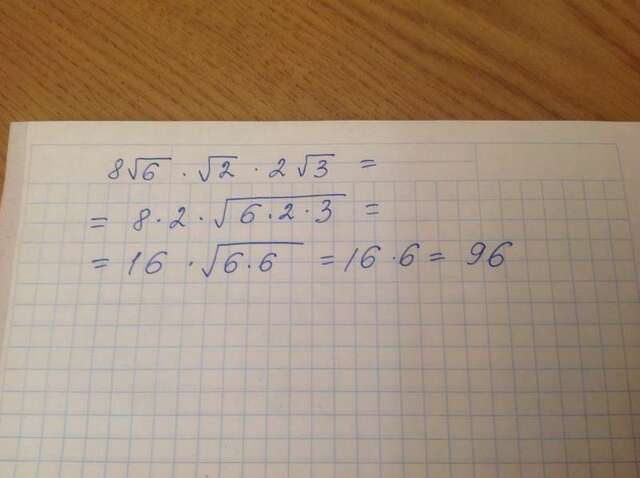 8√6 · √2 · 2√3 =
= 8 · 2 · √(6 · 2 · 3) =
= 16 · √(6 · 6) = 16 · 6 = 96